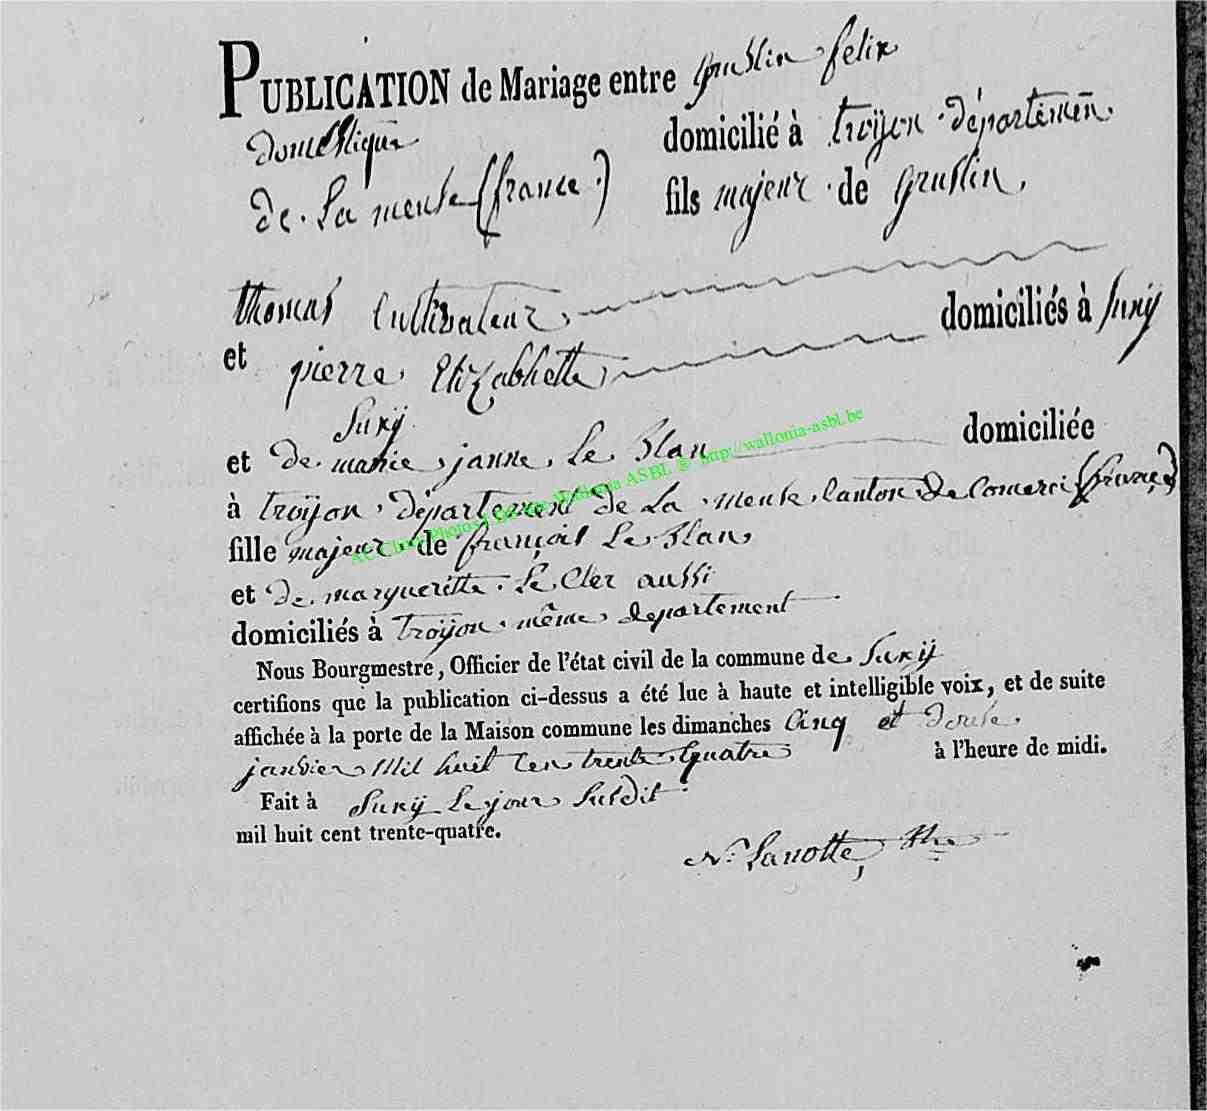 PUBLICATION de Mariage entre Gruslin felix
domestique domicilié à troÿon département
de La meuse (france) fils majeur de Gruslin
thomas Cultivateur
et pierre Elizabhette domiciliés à Suxÿ
Suxÿ
et de marie janne Le Blan domiciliée
à troÿon département de La meuse Canton de Comerci (france)
fille majeur de françois Le Blan
et de margueritte Le Cler aussi
domiciliés à troÿon même departement
Nous Bourgmestre, Officier de l'état civil de la commune de Suxÿ
certifions que la publication ci-dessus a été lue à haute et intelligible voix, et de suite
affichée à la porte de la Maison commune les dimanches Cinq et douse
janvier Mil huit Cen trente quatre à l'heure de midi.
Fait à Suxÿ Le jour Susdit
mil huit cent trente-quatre.
N. Lanotte
http://wallonia-asbl.be